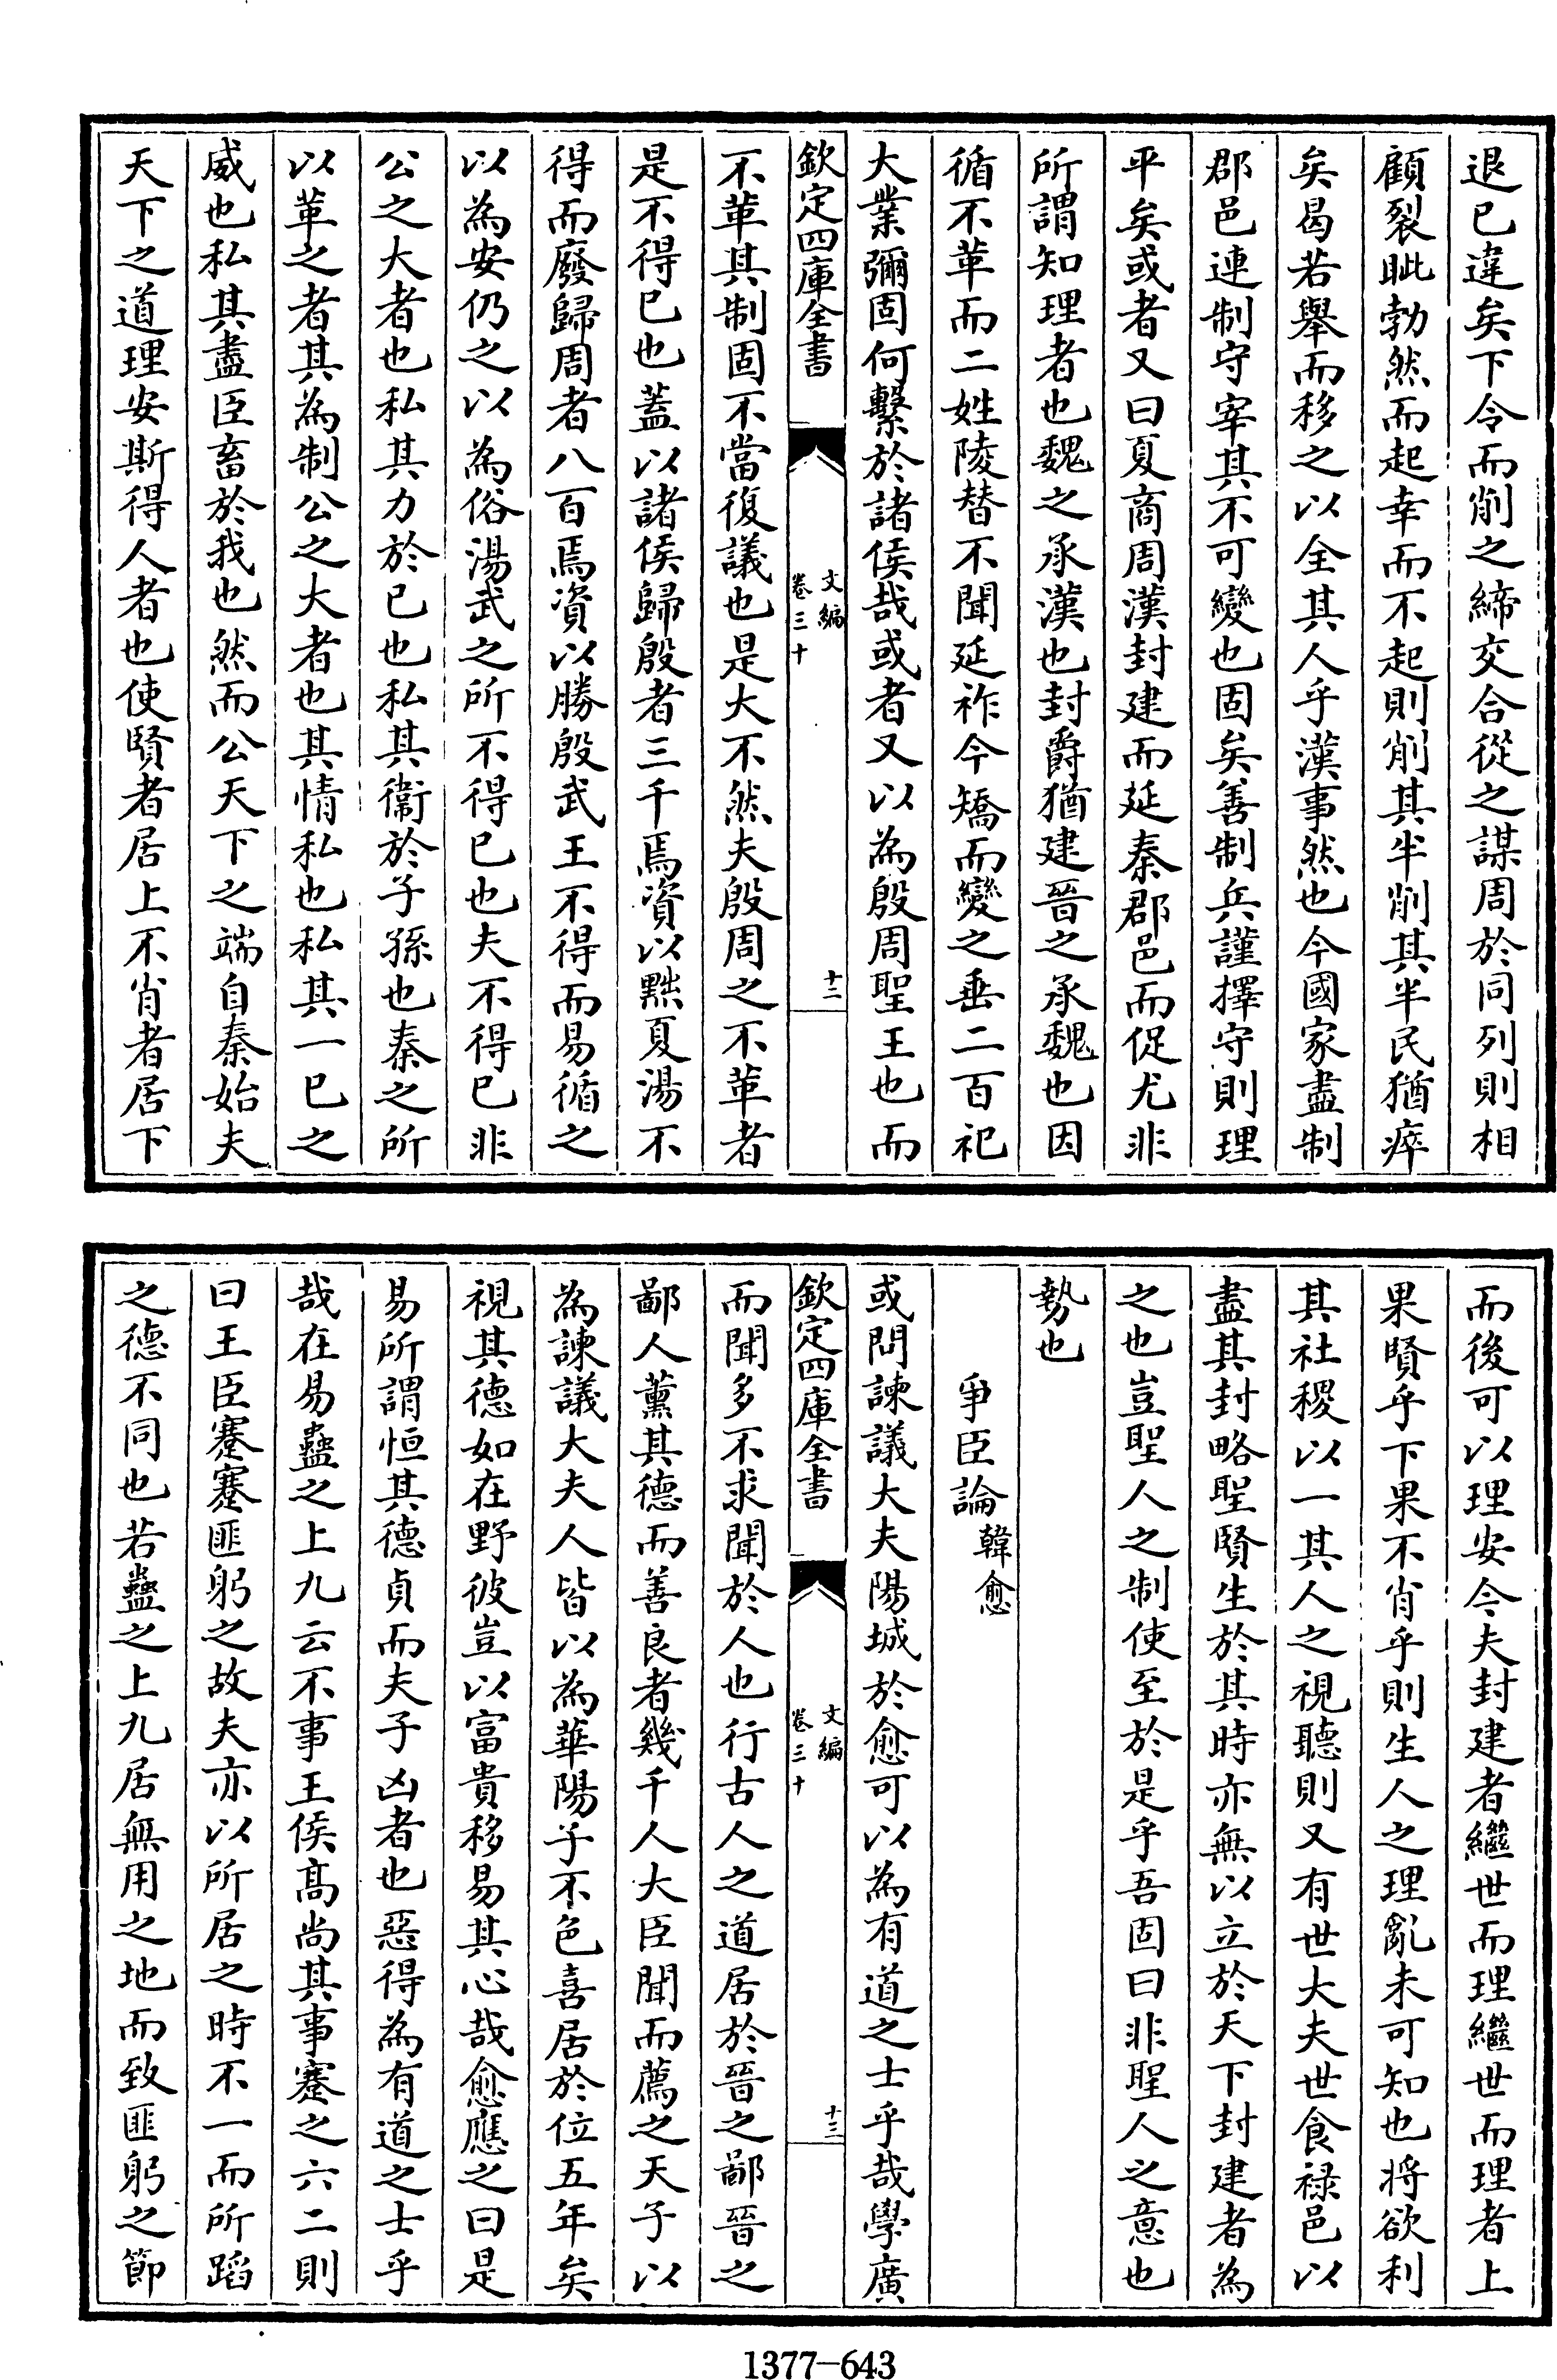 退已違矣下令而削之締交合從之謀周於同列則相
顧裂眦勃然而起幸而不起則削其半削其半民猶瘁
矣曷若舉而移之以全其人乎漢事然也今國家盡制
郡邑連制守宰其不可變也固矣善制兵謹擇守則理
平矣或者又曰夏商周漢封建而延秦郡邑而促尤非
所謂知理者也魏之承漢也封爵猶建晉之承魏也因
循不革而二姓陵替不聞延祚今矯而變之垂二百祀
大業彌固何繫於諸侯哉或者又以為殷周聖王也而
欽定四庫全書
文編
卷三十
十二
不革其制固不當復議也是大不然夫殷周之不革者
是不得已也蓋以諸侯歸殷者三千焉資以黜夏湯不
得而廢歸周者八百焉資以勝殷武王不得而易循之
以為安仍之以為俗湯武之所不得已也夫不得已非
公之大者也私其力於已也私其衞於子孫也秦之所
以革之者其為制公之大者也其情私也私其一已之
威也私其盡臣畜於我也然而公天下之端自秦始夫
天下之道理安斯得人者也使賢者居上不肖者居下
而後可以理安今夫封建者繼世而理繼世而理者上
果賢乎下果不肖乎則生人之理亂未可知也將欲利
其社稷以一其人之視聽則又有世大夫世食祿邑以
盡其封略聖賢生於其時亦無以立於天下封建者為
之也豈聖人之制使至於是乎吾固曰非聖人之意也
勢也
爭臣論韓愈
或問諫議大夫陽城於愈可以為有道之士乎哉學廣
欽定四庫全書
文編
卷三十
十三
而聞多不求聞於人也行古人之道居於晉之鄙晉之
鄙人薰其德而善良者幾千人大臣聞而薦之天子以
為諫議大夫人皆以為華陽子不色喜居於位五年矣
視其德如在野彼豈以富貴移易其心哉愈應之曰是
易所謂恒其德貞而夫子凶者也惡得為有道之士乎
哉在易蠱之上九云不事王侯髙尚其事蹇之六二則
曰王臣蹇蹇匪躬之故夫亦以所居之時不一而所蹈
之德不同也若蠱之上九居無用之地而致匪躬之節
1377-643